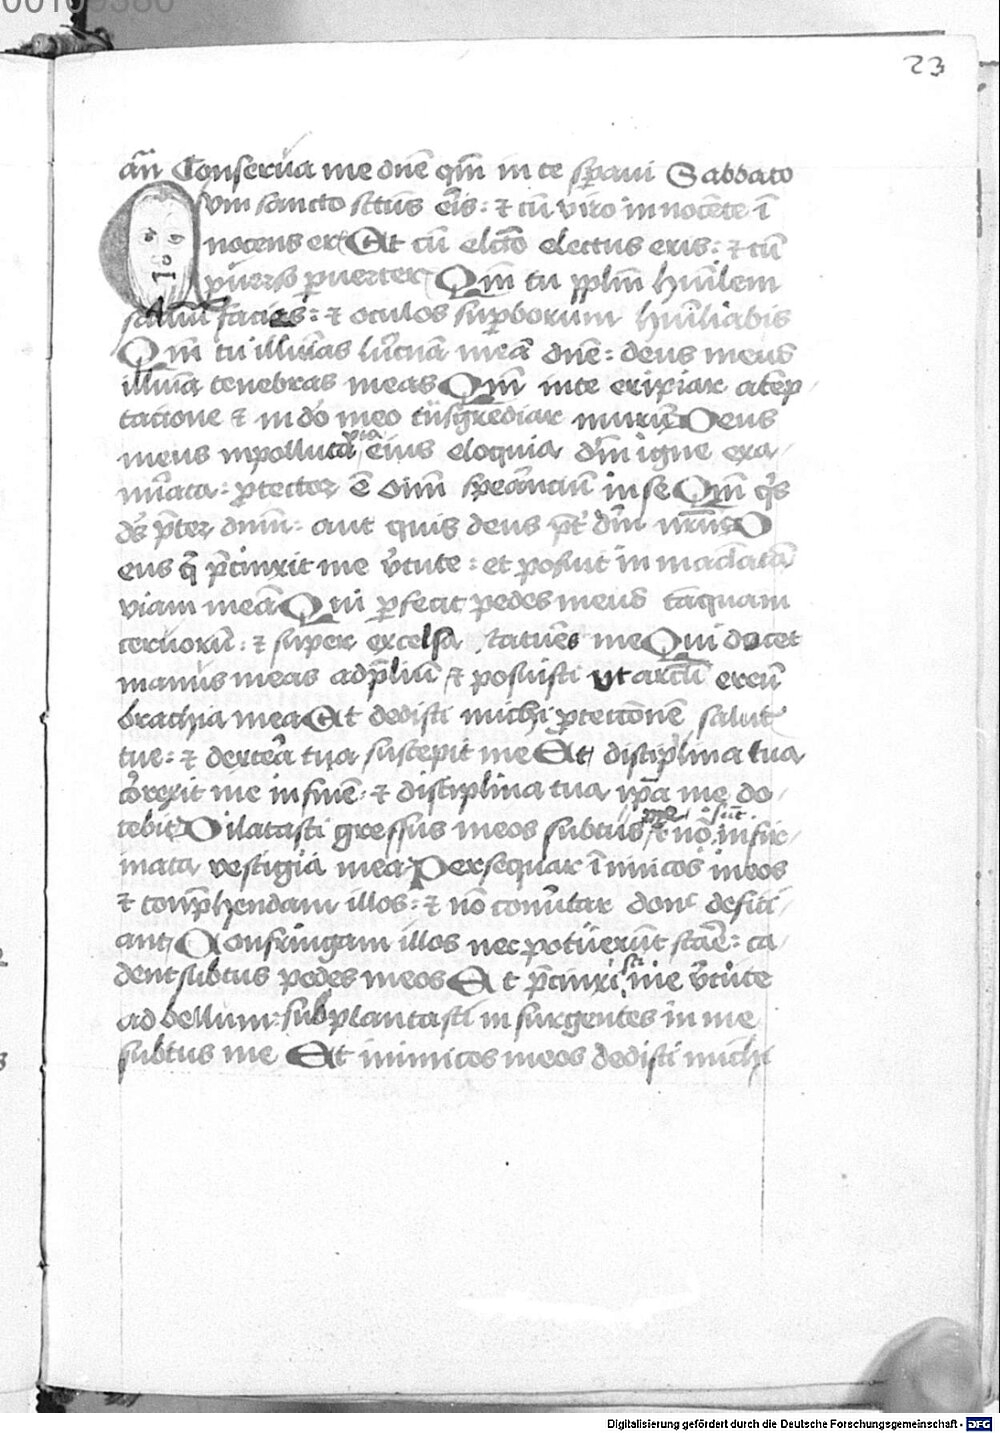 23
an̄ Conserua me dn̄e qm̄ in te sp̄aui Sabbato
Cvm sancto sctūs er̄is : ⁊ cū viro innocēte ī
nocens er̄ Et cū elcto electus eris : ⁊ cū
p̄uerso p̄uerter Qm̄ tu pplm̄ hūilem
saluū facies : ⁊ oculos suꝑborum hūiliabis
Qm̄ tu illūias lucnā meā dn̄e : deus meus
illuīa tenebras meas Qm̄ in te eripiar a tēp
tacione ⁊ in dō meo tūsgrediar murū Deus
meus inpolluta via eius eloquia dn̄i igne exa
mīata : ꝓtector ē oīm speranciū in se Qm̄ qs
ds p̄ter dnm̄ : aut quis deus p̄t dm̄ nrm̄ D
eus q̄ p̄cinxit me v̄tute : et posuit in maclatā
viam meā Qui ꝑfecit pedes meus tāquam
ceruorū : ⁊ super excelsa statuēs me Qui docet
manus meas ad p̄liū ⁊ posuisti vt arcū ereū
brachia mea Et dedisti michi ꝓteccōnē salut
tue : ⁊ dextera tua suscepit me Et disciplina tua
corexit me in finē : ⁊ disciplina tua ip̄a me do
cebit Dilatasti gressus meos subtus me ⁊ nō sūt infir
mata vestigia mea Persequar īimicos meos
⁊ conp̄hendam illos : ⁊ nō conūtar donc defici
ant Confringam illos nec potuerūt stāe : ca
dent subtus pedes meos Et p̄cinxisti me v̄tute
ad bellum : subplantasti insurgentes in me
subtus me Et inimicos meos dedisti michi
Digitalisierung gefördert durch die Deutsche Forschungsgemeinschaft - DFG